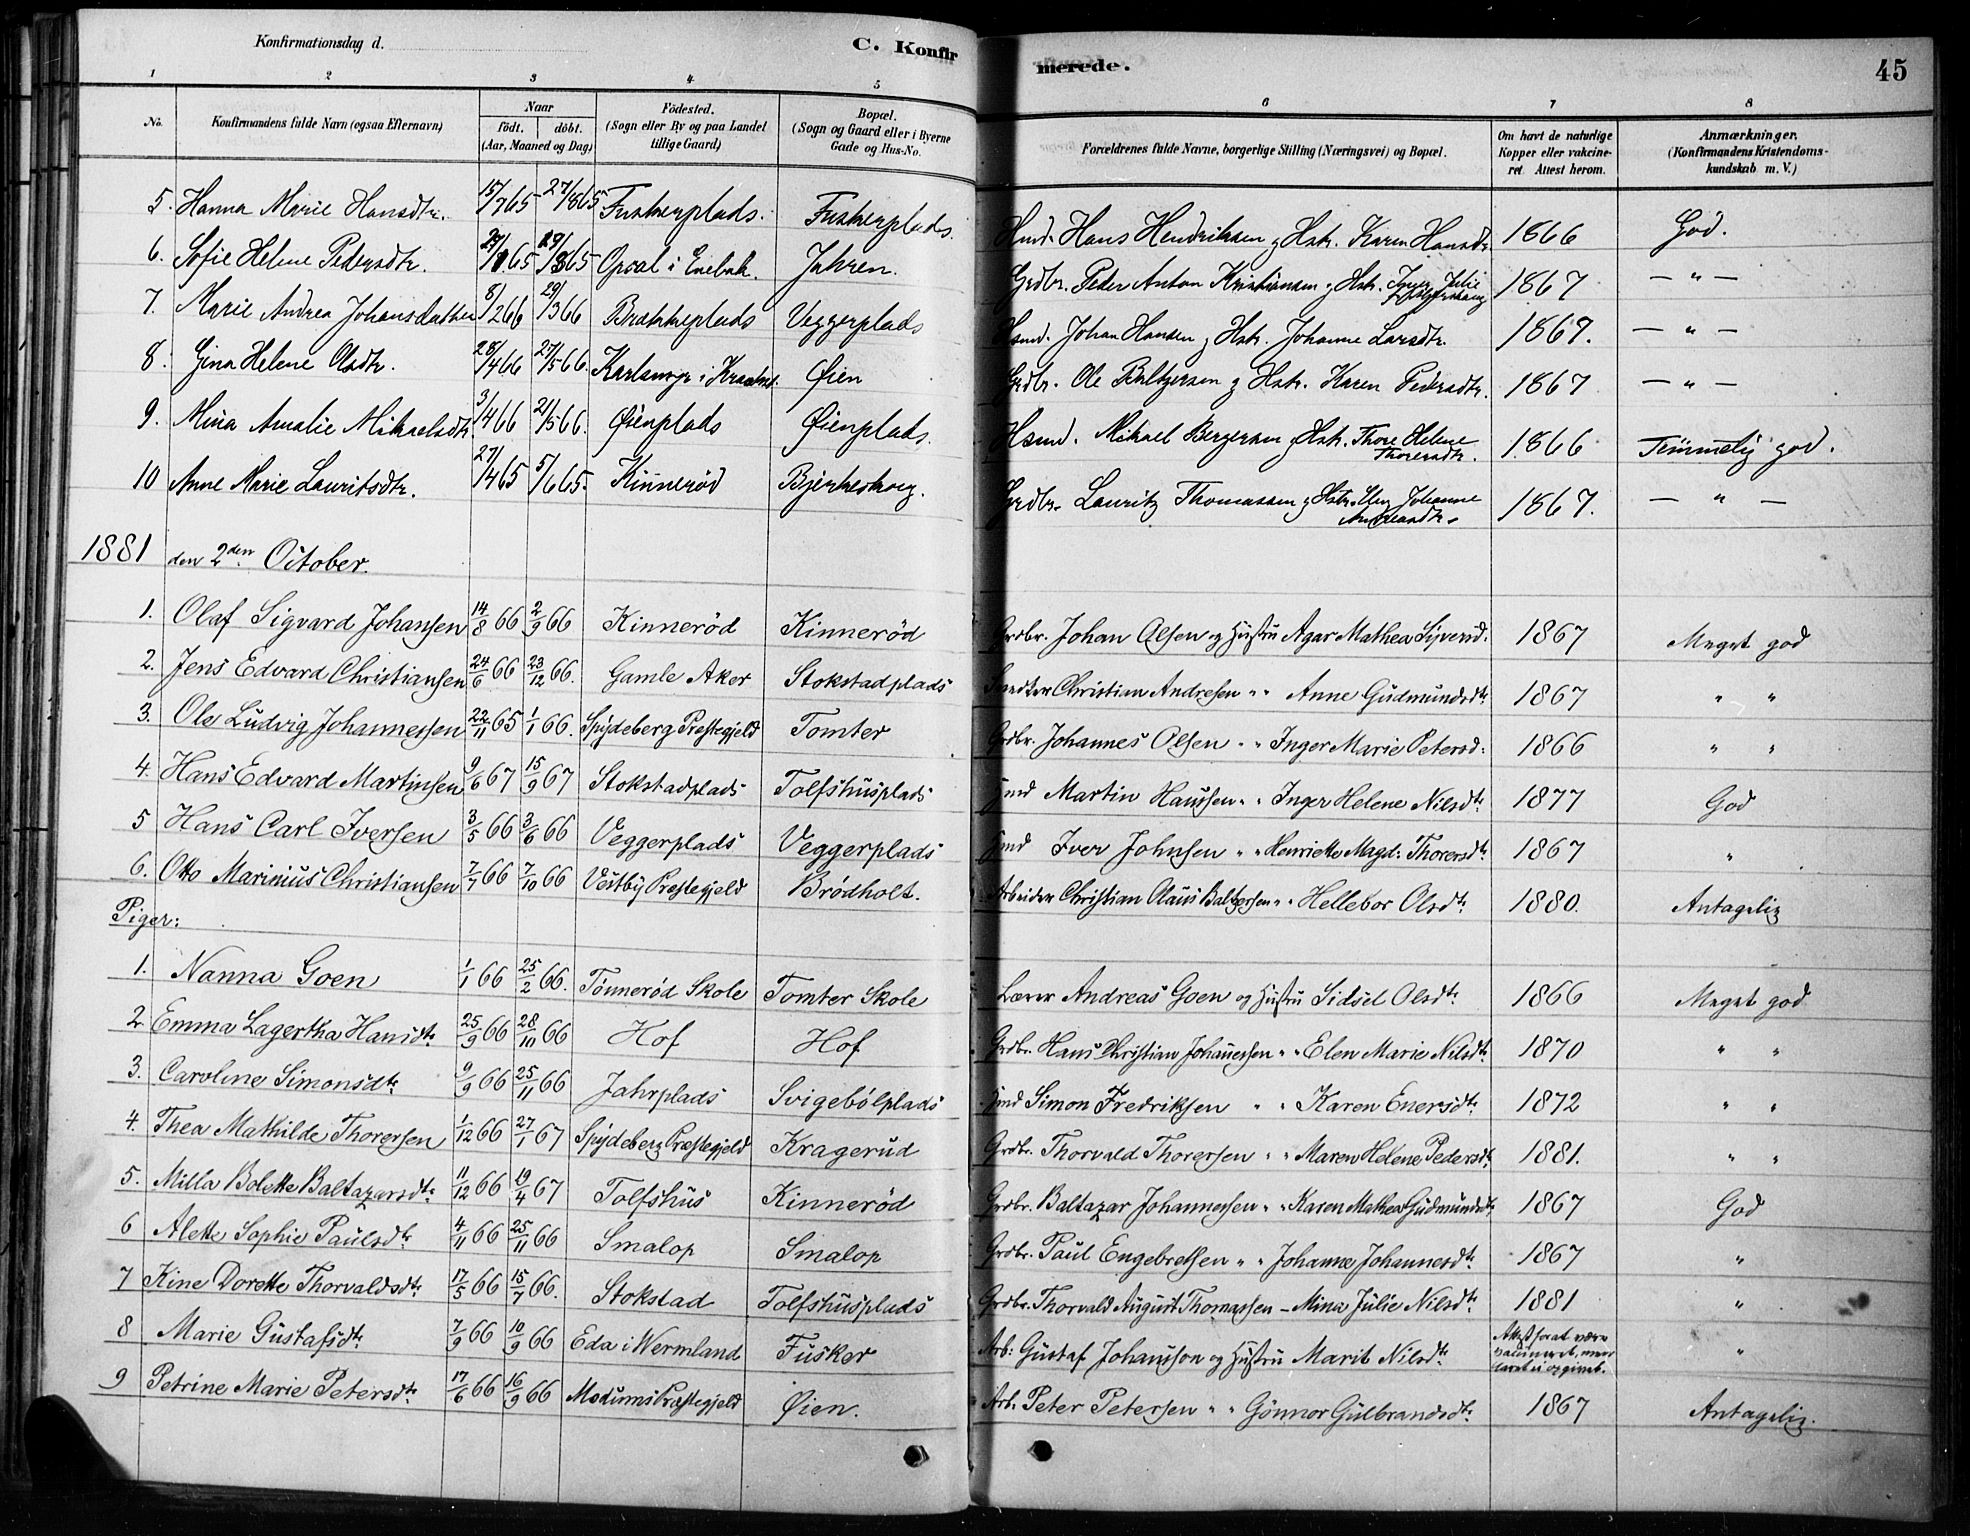 Konfirmationsdag d. C. Konfirmerede. 45
1 2 3 4 5 6 7 8
No. Konfirmandens fulde Navn (ogsaa Efternavn) Naar født. døbt. (Aar, Maaned og Dag) Födested. (Sogn eller By og paa Landet tillige Gaard) Bopæl. (Sogn og Gaard eller i Byerne Gade og Hus-No. Forældrenes fulde Navne, borgerlige Stilling (Næringsvei) og Bopæl. Om havt de naturlige Kopper eller vakcineret. Attest herom. Anmærkninger, (Konfirmandens Kristendomskundskab m. V.)
5. Hanna Marie Hansdtr. 15/7 65 27/8 65 Fuskerplads. Fuskerplads. Hmd. Hans Hendriksen g Hstr. Karen Hansdtr. 1866 God.
6. Sofie Helene Pedersdtr. Opsal i Enebak. Jahren. Grdbr. Peder Anton Kristiansen g Hstr. Inger Julie 1867 — " —
7. Marie Andrea Johansdatter 8/2 66 29/3 66 Brækkeplads Veggerplads Hsmd. Johan Hansen g Hstr. Johanne Larsdtr. 1867. — " —
8. Gina Helene Olsdtr. 28/4 66 27/5 66. Øien Grdbr. Ole Baltzersen g Hstr. Karen Pedersdtr. 1867 — " —
9. Mina Amalie Mikaelsdtr 3/4 66 21/5 66. Øienplads Øienplads. Hsmd. Mikael Bergersen g Hstr. Thore Helene Thoresdtr. 1866 Temmelig god.
10 Anne Marie Lauritsdtr. 27/4 65 5/6 65. Kinnerød Bjerkeskog. Grdbr. Lauritz Thomassen g Hstr. Johanne Andreasdtr. 1867. — " —
1881 den 2den October.
1. Olaf Sigvard Johansen 14/8 66 2/9 66 Kinnerød Kinnerød Grdbr. Johan Olsen og Hustru Agar Mathea Siversd. 1867 Meget god
2. Jens Edvard Christiansen 24/6 66 23/12 66. Gamle Aker Stokstadplads Christian Andresen " " Anne Gudmundsdtr 1867 " "
3. Ole Ludvig Johannessen 22/11 65 1/1 66. Spydeberg Præstegjeld Tomter Grdbr. Johannes Olsen " " Inger Marie Petersd: 1866 " "
4. Hans Edvard Martinsen 9/6 67 15/9 67 Stokstadplads Tolfshusplads Hmd Martin Hanssen " " Inger Helene Nilsdtr 1877 God
5 Hans Carl Iversen 3/5 66 3/6 66 Veggerplads Veggerplads Hmd Iver Johnsen " " Henriette Magd: Thorersdtr 1867 "
6. Otto Marinius Christiansen 7/7 66 7/10 66 Vestby Prestegjeld Brødholt. Arbeider Christian Olaus Baltzersen " " Hellebor Olsdtr. 1880. Antagelig
Piger:
1. Nanna Goen 1/1 66 25/2 66. Tønnerød Skole Tomter Skole Lærer Andreas Goen og Hustru Sidsel Olsdtr 1866 Meget god
2. Emma Lagertha Hansdtr. 25/9 66 28/10 66 Hof Hof Grdbr. Hans Christian Johannessen " " Elen Marie Nilsdtr 1870 " "
3. Caroline Simonsdtr 9/9 66 25/11 66 Jahrplads Svigebölplads Hmd Simon Fredriksen " " Karen Enersdtr 1872 " "
4. Thea Mathilde Thorersen 1/12 66 27/1 67 Spydeberg Præstegjeld Kragerud Grdbr. Thorvald Thorersen " " Maren Helene Pedersdtr 1881. " "
5. Milla Bolette Baltazarsdtr 11/12 66 19/4 67 Tolfshus Kinnerød Grdbr. Baltazar Johannessen " " Karen Mathea Gudmundsdtr 1867 God
6 Alette Sophie Paulsdtr 4/11 66 25/11 66 Smalop Smalop Grdbr. Paul Engebretsen " " Johanne Johannesdtr 1867 "
7 Kine Dorette Thorvaldsdtr. 17/5 66 15/7 66. Stokstad Tolfshusplads Grdbr. Thorvald August Thomassen – Mina Julie Nilsdtr 1881 "
8 Marie Gustafsdtr 7/9 66 10/9 66 Eda i Wermland Fusker Arb: Gustaf Johansson og Hustru Marit Nilsdtr Attest for at være vaccineret, men "
9 Petrine Marie Petersdtr 17/6 66 16/9 66 Modums Præstegjeld Øien. Arb. Peter Petersen " " Gönnor Gulbrandsdtr 1867 Antagelig.